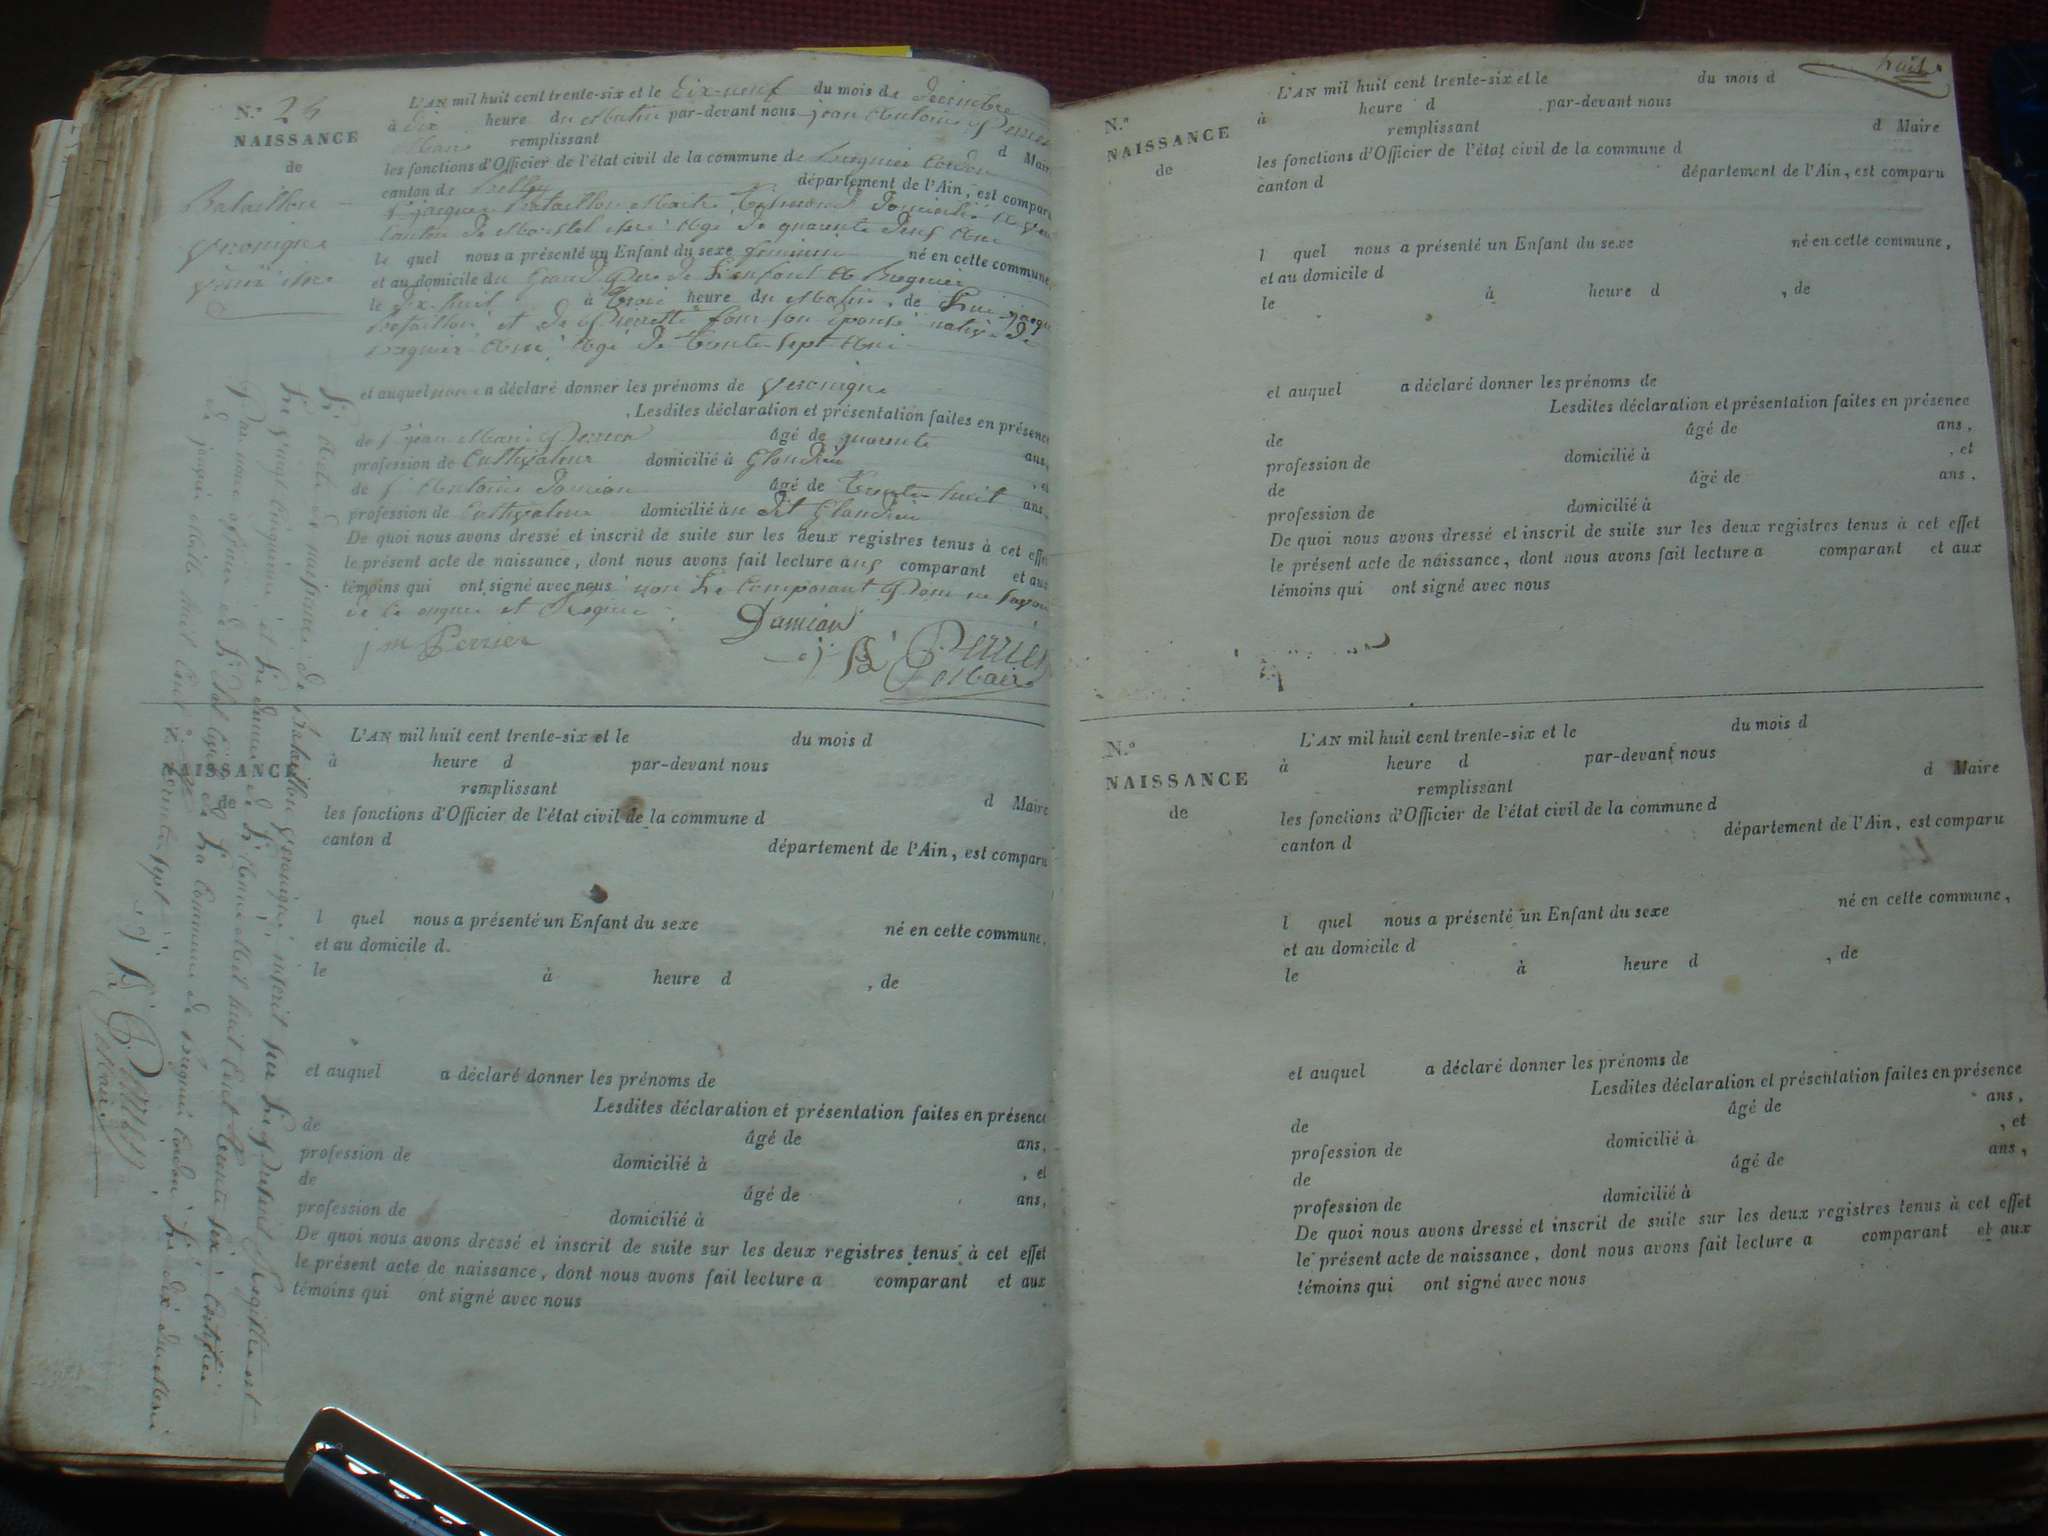 N.º 24
NAISSANCE
de
Bataillon
veronique
L'AN mil huit cent trente-six et le dix-neuf du mois de decembre
à dix heure du Matin par-devant nous jean Antoine Perrier
Maire remplissant d Maire
les fonctions d'Officier de l'état civil de la commune de Bregnier Cordon
canton de Belley département de l'Ain, est comparu
S. jacques Bataillon domicilié
Canton de age de quarante deux Ans
le quel nous a présenté un Enfant du sexe feminin né en cette commune,
et au domicile du Grand Pere de L'enfant a Bregnier
le dix-huit à trois heure du Matin, de Lui jacque
Bataillon et de Pierrette son épouse native de
Bregnier Agé de trente-sept Ans
et auquel nous a déclaré donner les prénoms de veronique
. Lesdites déclaration et présentation faites en présence
de S. jean Marie Perrier âgé de quarante ans,
profession de Cultivateur domicilié à Glandieu
de S. Antoine Damian âgé de trente huit ans, et
profession de Cultivateur domicilié à u dit Glandieu
De quoi nous avons dressé et inscrit de suite sur les deux registres tenus à cet effet
le présent acte de naissance, dont nous avons fait lecture aux comparant et aux
témoins qui ont signé avec nous non Le Comparant Pour ne savoir
de ce enquis et Requis
j m Perrier Damian
Perrier
Maire
L'Acte de naissance de Bataillon veronique inscrit sur Le présent Registre est
Le vingt cinquieme et Le dernier de L'Année Mil huit Cent trente six, Certifié
Par nous officier de L'état Civil de La Commune de Bregnier Cordon, Le dix
Mille huit Cent trente sept
Perrier
Maire
NAISSANCE
de
L'AN mil huit cent trente-six et le du mois d
à heure d par-devant nous
remplissant d Maire
les fonctions d'Officier de l'état civil de la commune d
canton d département de l'Ain, est comparu
l quel nous a présenté un Enfant du sexe né en cette commune,
et au domicile d
le à heure d , de
et auquel a déclaré donner les prénoms de
Lesdites déclaration et présentation faites en présence
de âgé de ans,
profession de domicilié à , et
de âgé de ans,
profession de domicilié à
De quoi nous avons dressé et inscrit de suite sur les deux registres tenus à cet effet
le présent acte de naissance, dont nous avons fait lecture a comparant et aux
témoins qui ont signé avec nous
huit
N.º
NAISSANCE
de
L'AN mil huit cent trente-six et le du mois d
à heure d par-devant nous
remplissant d Maire
les fonctions d'Officier de l'état civil de la commune d
canton d département de l'Ain, est comparu
l quel nous a présenté un Enfant du sexe né en cette commune,
et au domicile d
le à heure d , de
et auquel a déclaré donner les prénoms de
Lesdites déclaration et présentation faites en présence
de âgé de ans,
profession de domicilié à , et
de âgé de ans,
profession de domicilié à
De quoi nous avons dressé et inscrit de suite sur les deux registres tenus à cet effet
le présent acte de naissance, dont nous avons fait lecture a comparant et aux
témoins qui ont signé avec nous
N.º
NAISSANCE
de
L'AN mil huit cent trente-six et le du mois d
à heure d par-devant nous
remplissant d Maire
les fonctions d'Officier de l'état civil de la commune d
canton d département de l'Ain, est comparu
l quel nous a présenté un Enfant du sexe né en cette commune,
et au domicile d
le à heure d , de
et auquel a déclaré donner les prénoms de
Lesdites déclaration et présentation faites en présence
de âgé de ans,
profession de domicilié à , et
de âgé de ans,
profession de domicilié à
De quoi nous avons dressé et inscrit de suite sur les deux registres tenus à cet effet
le présent acte de naissance, dont nous avons fait lecture a comparant et aux
témoins qui ont signé avec nous